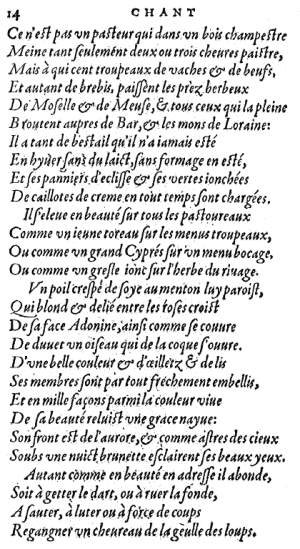 14 CHANT
Ce n'est pas un pasteur qui dans un bois champestre
Meine tant seulemẽnt deux ou trois cheures paistre,
Mais à qui cent troupeaux de vaches & de beufs,
Et autant de brebis, paissent les prez herbeux
De Moselle & de Meuse, & tous ceux qui la pleine
Broutent aupres de Bar, & les mons de Loraine:
Il a tant de bestail qu'il n'a iamais esté
En hyuer sans du laict, sans formage en esté,
Et ses panniers d'eclisse & ses vertes ionchées
De caillotes de creme en tout temps sont chargées.
Il s'eleue en beauté sur tous les pastoureaux
Comme un ieune toreau sur les menus troupeaux,
Ou comme un grand Cyprés sur un menu bocage,
Ou comme un gresle ionc sur l'herbe du riuage.
Un poil crespé de soye au menton luy paroist,
Qui blond & delié entre les roses croist
De sa face Adonine, ainsi comme se couure
De duuet un oiseau qui de la coque s'ouure.
D'vne belle couleur & d'œilletz & de lis
Ses membres sont par tout freschement embellis,
Et en mille façons parmi la couleur viue
De sa beauté reluist vne grace nayue:
Son front est de l'aurore, & comme astres des cieux
Soubs vne nuict brunette esclairent ses beaux yeux.
Autant comme en beauté en adresse il abonde,
Soit à getter le dart, ou à ruer la fonde,
A sauter, à luter ou à force de coups
Regangner un cheureau de la geulle des loups.